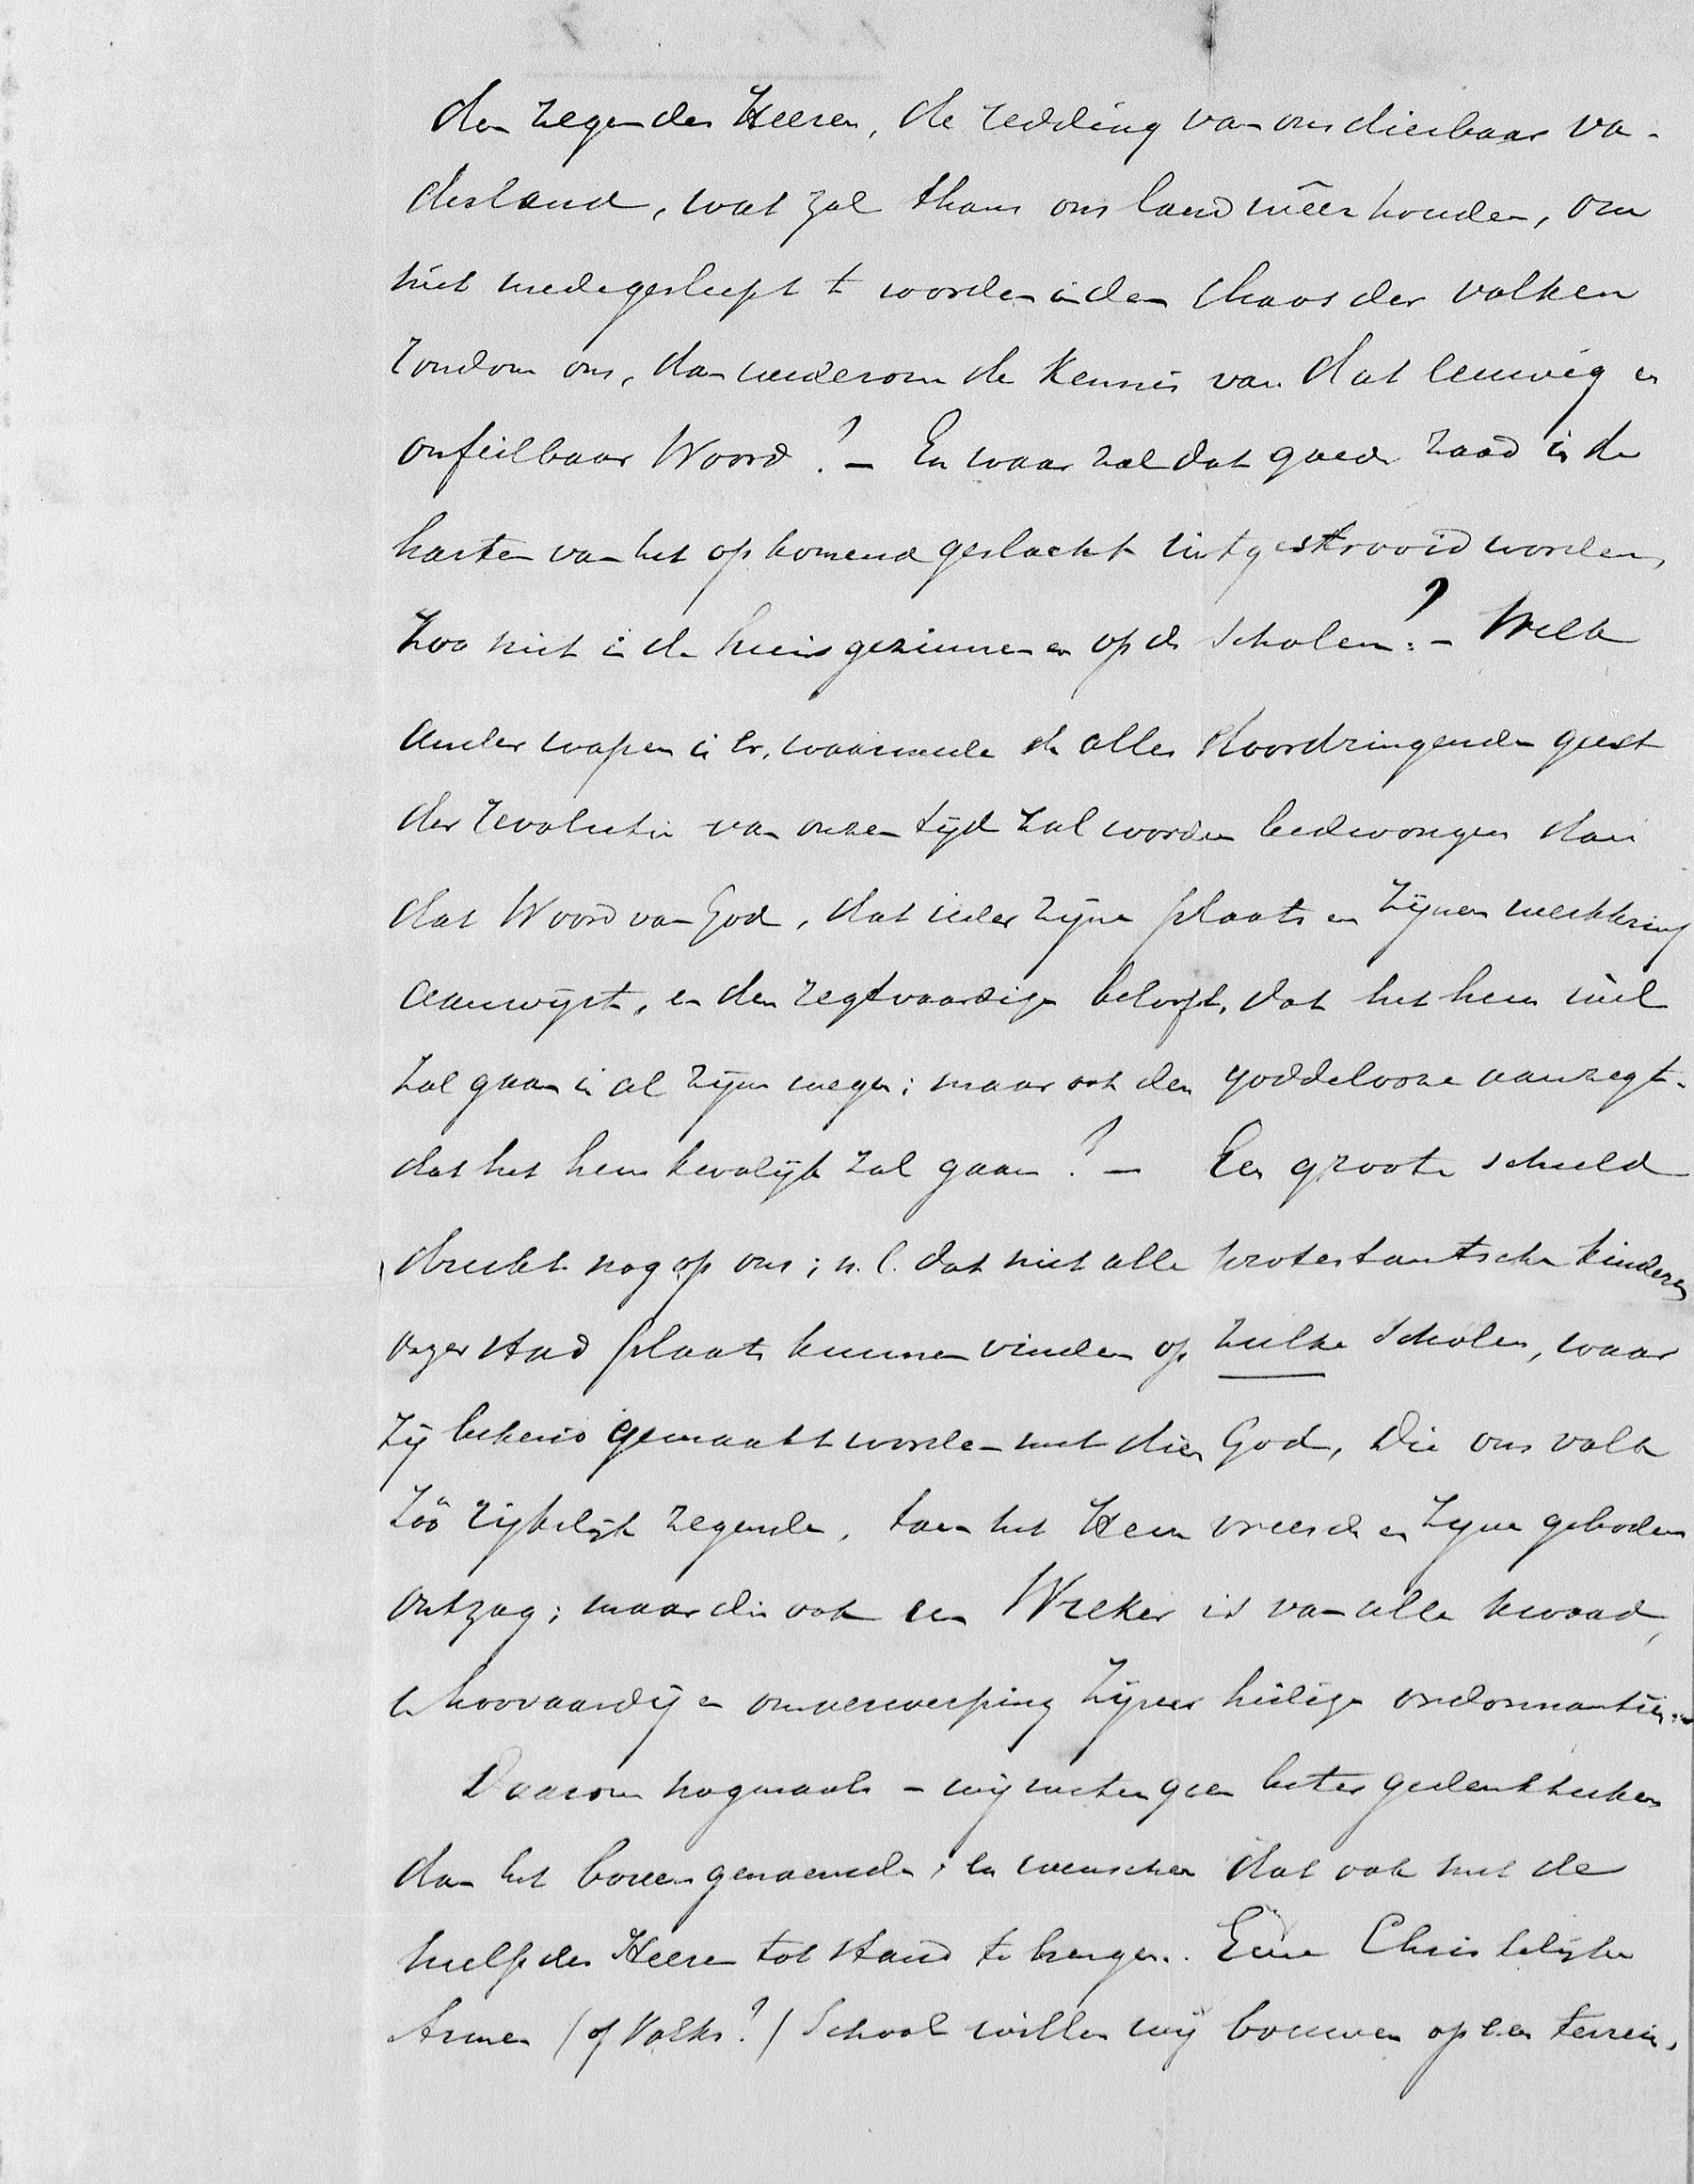 den zegen des Heeren, de redding van ons dierbaar va-
derland, wat zal thans ons land wêerhouden, om
niet medegesleept te worden in den chaos der volken
rondom ons, dan wederom de kennis van dat eeuwig en
onfeilbaar Woord? – En waar zal dat goede zaad in de
harten van het opkomend geslacht uitgestrooid worden,
zoo niet in de huisgezinnen en op de scholen? – Welk
ander wapen is er, waarmede de alles doordringenden geest
der revolutie van onzen tijd zal worden bedwongen dan
dat Woord van God, dat ieder zijne plaats en zijnen werkkring
aanwijst, en den regtvaardige belooft, dat het hem wèl
zal gaan in al zijne wegen; maar ook den goddelooze aanzegt,
dat het hem kwalijk zal gaan? – Een groote schuld
drukt nog op ons; n.l. dat niet alle protestantsche kinderen
onzer stad plaats kunnen vinden op zulke scholen, waar
zij bekend gemaakt worden met dien God, Die ons volk
zóó rijkelijk zegende, toen het Hem vreesde en zijne geboden
ontzag; maar die ook een Wreker is van alle kwaad,
hoovaardij en omverwerping zijner heilige ordonnantiën.
Daarom nogmaals – wij weten geen beter gedenkteeken
dan het bovengenoemde; en wenschen dat ook met de
hulp des Heeren tot stand te brengen. Eene Christelijke
Armen (of Volks?) School willen wij bouwen op een terrein,